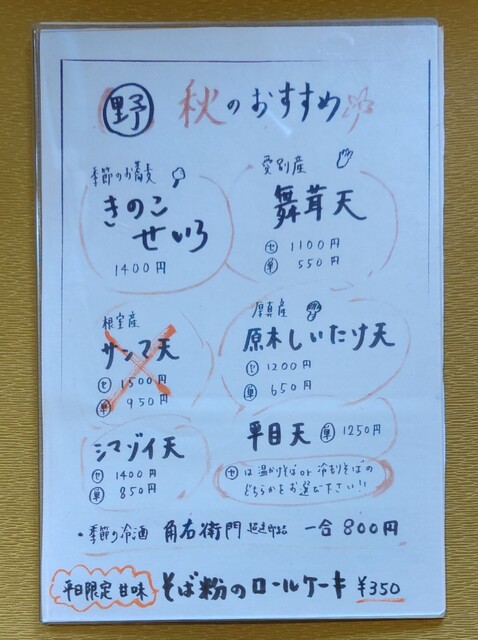 野 秋のおすすめ
季節のお蕎麦
きのこ
せいろ
1400円
愛別産
舞茸天
セ 1100円
単 550円
根室産
サンマ天
セ 1500円
単 950円
厚真産
原木しいたけ天
セ 1200円
単 650円
シマゾイ天
セ 1400円
単 850円
平目天 単 1250円
セ は温かけそばor冷もりそばの
どちらかをお選び下さい!!
・季節の冷酒 角右衛門 一合 800円
平日限定 甘味 そば粉のロールケーキ ¥350